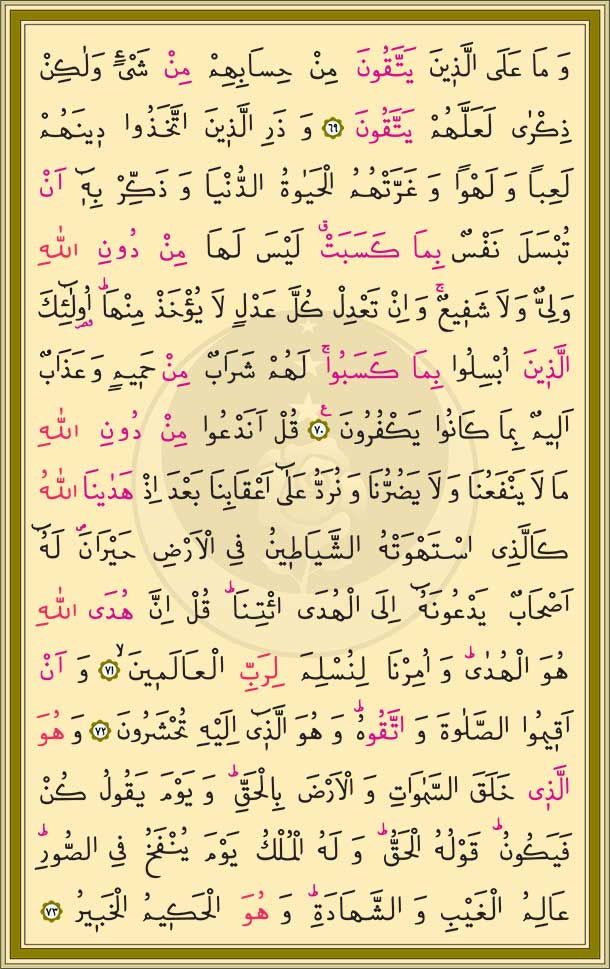 وَ مَا عَلَى الَّذ۪ينَ يَتَّقُونَ مِنْ حِسَابِهِمْ مِنْ شَىْءٍ وَلٰكِنْ
ذِكْرٰى لَعَلَّهُمْ يَتَّقُونَ ﴿٦٩﴾ وَ ذَرِ الَّذ۪ينَ اتَّخَذُوا د۪ينَهُمْ
لَعِباً وَ لَهْوًا وَ غَرَّتْهُمُ الْحَيٰوةُ الدُّنْيَا وَ ذَكِّرْ بِه۪ٓ اَنْ
تُبْسَلَ نَفْسٌ بِمَا كَسَبَتْۗ لَيْسَ لَهَا مِنْ دُونِ اللّٰهِ
وَلِىٌّ وَلَا شَف۪يعٌۚ وَ اِنْ تَعْدِلْ كُلَّ عَدْلٍ لَا يُؤْخَذْ مِنْهَاۜ اُو۬لٰٓئِكَ
الَّذ۪ينَ اُبْسِلُوا بِمَا كَسَبُواۚ لَهُمْ شَرَابٌ مِنْ حَم۪يمٍ وَ عَذَابٌ
اَل۪يمٌ بِمَا كَانُوا يَكْفُرُونَ ﴿٧٠﴾ ع قُلْ اَنَدْعُوا مِنْ دُونِ اللّٰهِ
مَا لَا يَنْفَعُنَا وَ لَا يَضُرُّنَا وَ نُرَدُّ عَلٰٓى اَعْقَابِنَا بَعْدَ اِذْ هَدٰينَا اللّٰهُ
كَالَّذِى اسْتَهْوَتْهُ الشَّيَاط۪ينُ فِى الْاَرْضِ حَيْرَانَۖ لَهُٓ
اَصْحَابٌ يَدْعُونَهُٓ اِلَى الْهُدَى ائْتِنَاۜ قُلْ اِنَّ هُدَى اللّٰهِ
هُوَ الْهُدٰىۜ وَ اُمِرْنَا لِنُسْلِمَ لِرَبِّ الْعَالَم۪ينَۙ ﴿٧١﴾ وَ اَنْ
اَق۪يمُوا الصَّلٰوةَ وَ اتَّقُوهُۜ وَ هُوَ الَّذ۪ٓى اِلَيْهِ تُحْشَرُونَ ﴿٧٢﴾ وَ هُوَ
الَّذ۪ى خَلَقَ السَّمٰوَاتِ وَ الْاَرْضَ بِالْحَقِّۜ وَ يَوْمَ يَقُولُ كُنْ
فَيَكُونُۜ قَوْلُهُ الْحَقُّۜ وَ لَهُ الْمُلْكُ يَوْمَ يُنْفَخُ فِى الصُّورِۜ
عَالِمُ الْغَيْبِ وَ الشَّهَادَةِۜ وَ هُوَ الْحَك۪يمُ الْخَب۪يرُ ﴿٧٣﴾